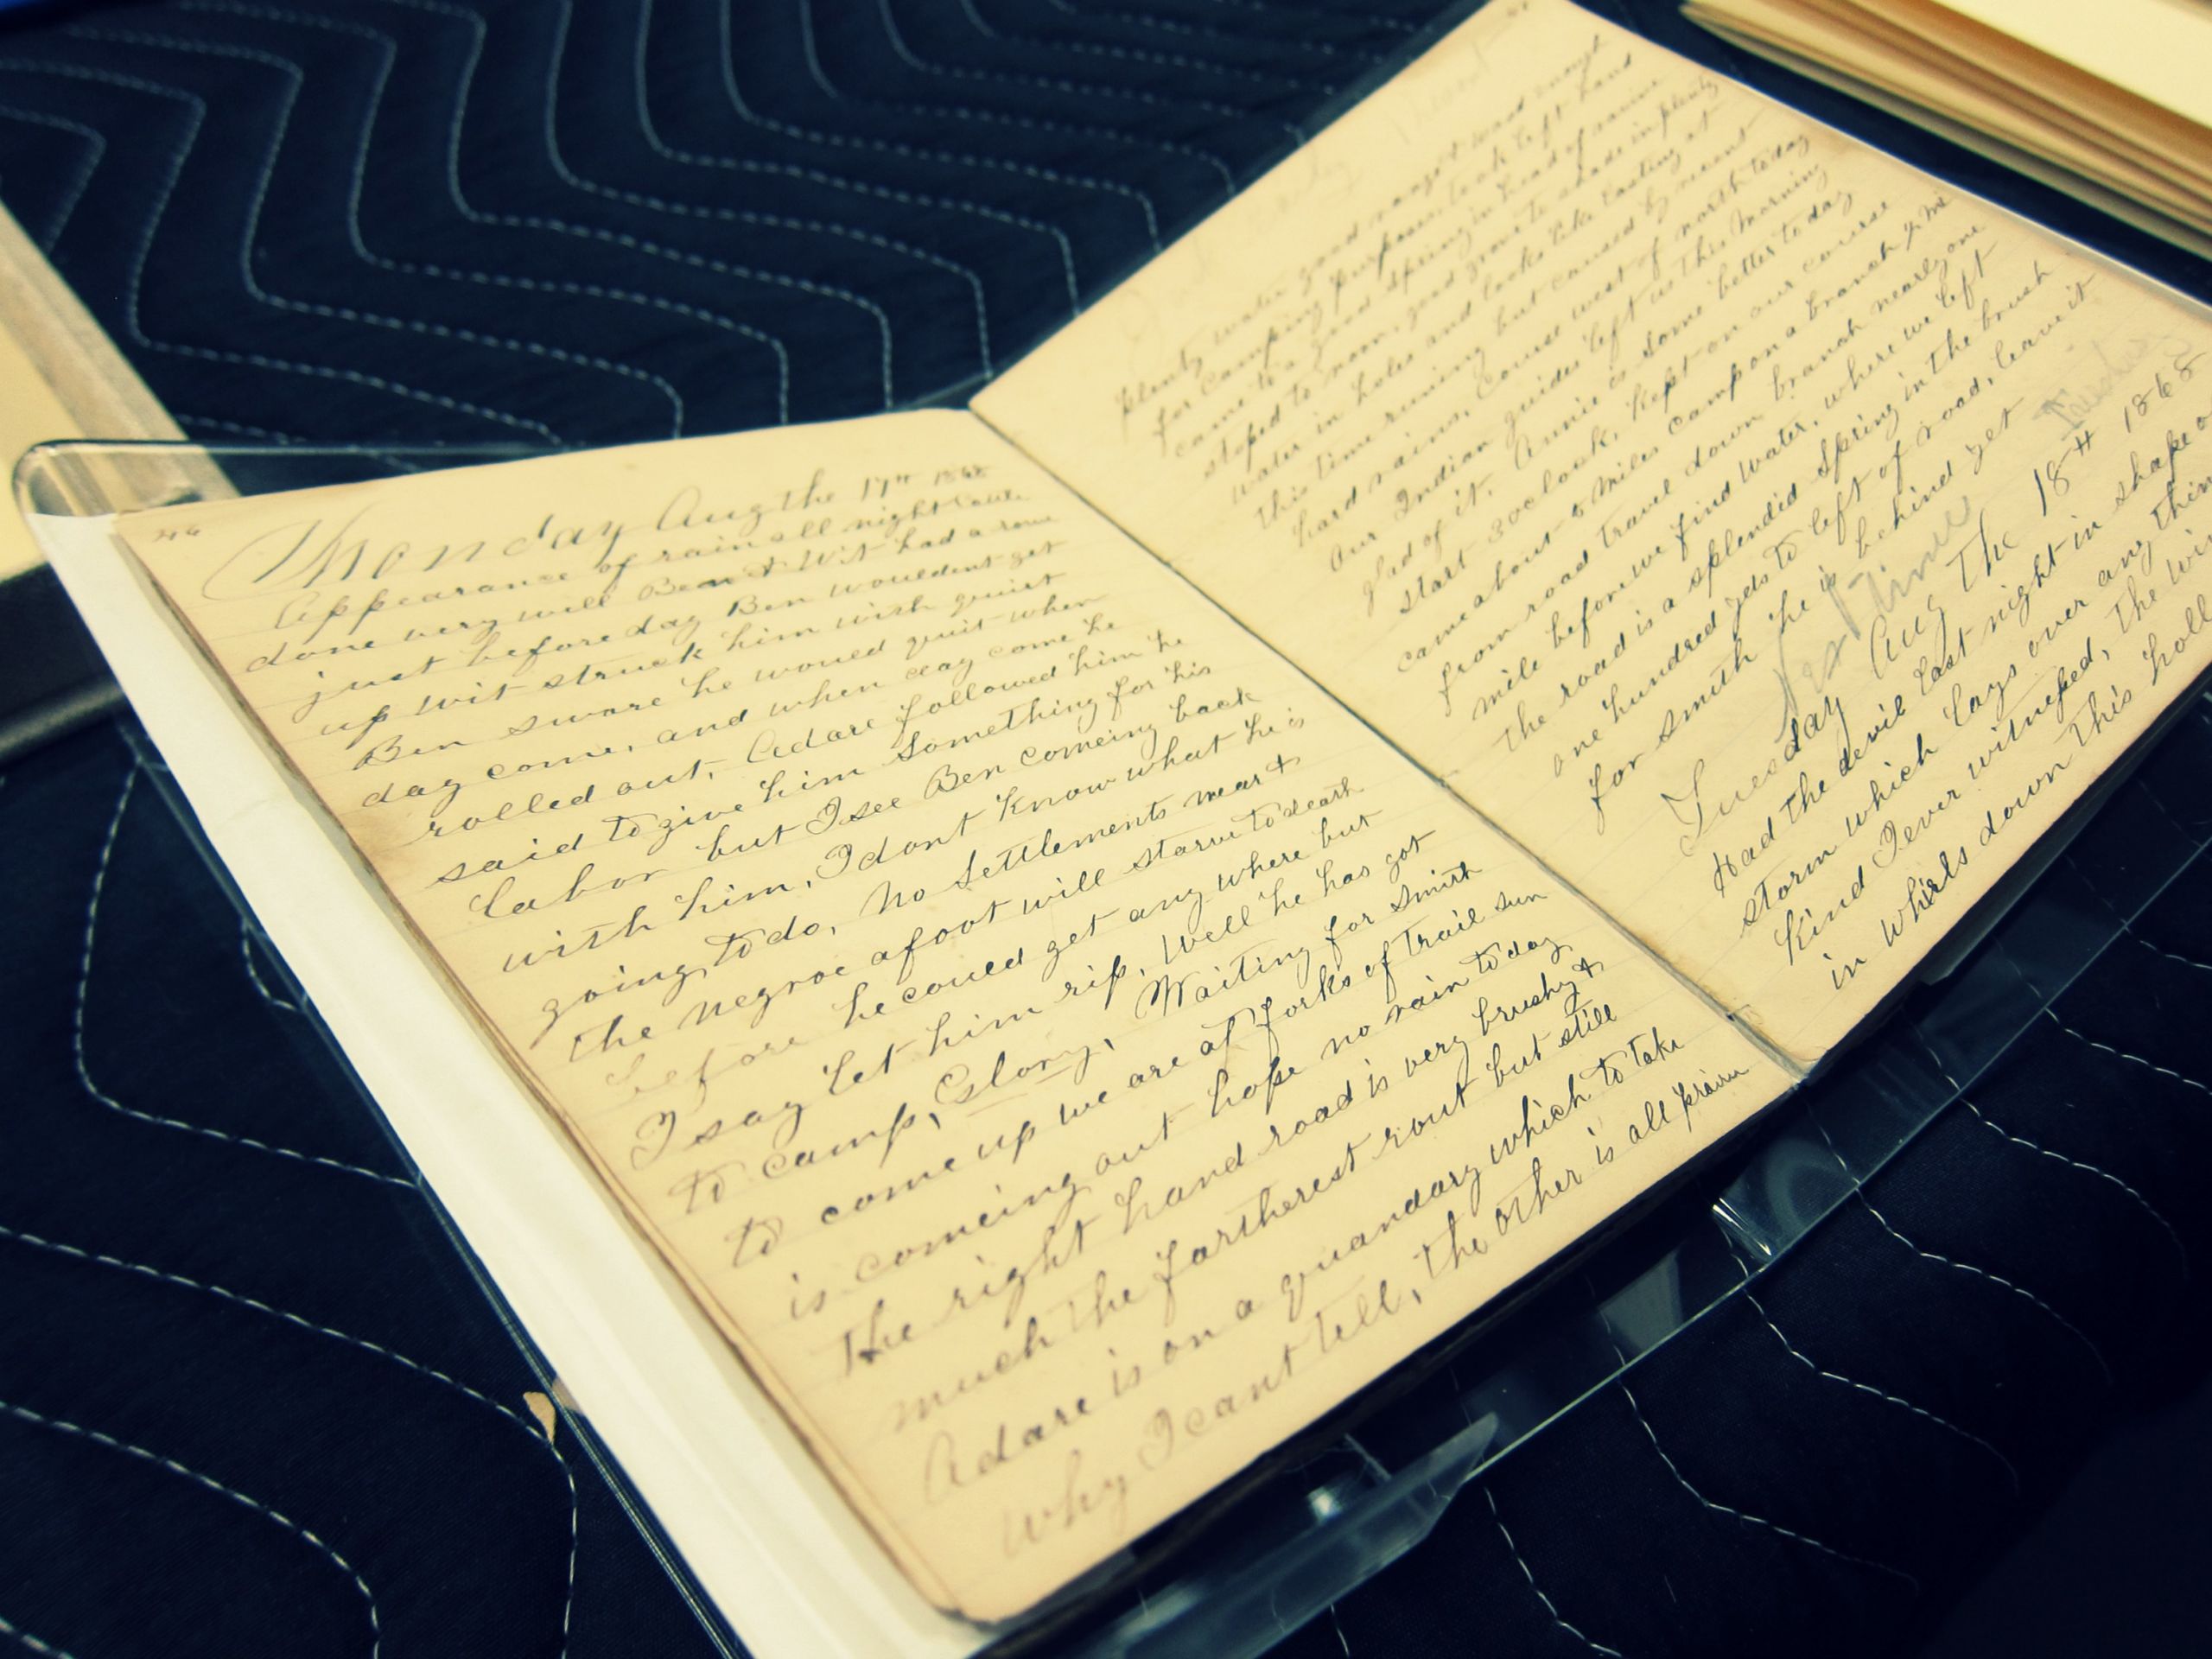 Monday Aug the 17th 1868
Appearance of rain all night
done very well Ben & Wit had a row
just before day Ben wouldent get
up Wit struck him with quirt
Ben sware he would quit when
day come, and when day come he
rolled out, Adare followed him he
said to give him something for his
labor but I see Ben comeing back
with him, I dont know what he is
going to do, No settlements near &
the negroe afoot will starve to death
before he could get any where but
I say let him rip, Well he has got
to camp, Glory, Waiting for Smith
to come up we are at forks of trail sun
is comeing out hope no rain to day
The right hand road is very brushy &
much the fartherest rout but still
Adare is on a quandary which to take
why I cant tell, the other is all prairie
plenty water good range wood enough
for camping purposes took left hand
came to a good spring in head of ravine
stoped to noon, good grove to shade in plenty
water in holes and looks like lasting at
this time running but caused by recent
hard rains, Course west of north to day
Our Indian guides left us this morning
glad of it, Annie is some better to day
Start 3 oclock, Kept on our course
came about 8 miles camp on a branch
from road travel down branch nearly one
mile before we find water, where we left
the road is a splendid spring in the brush
one hundred yds to left of road, leave it
for Smith he is behind yet
Tuesday Aug the 18th 1868
Had the devil last night in shape
storm which lays over any thing
kind I ever witnessed, the
in whirls down this